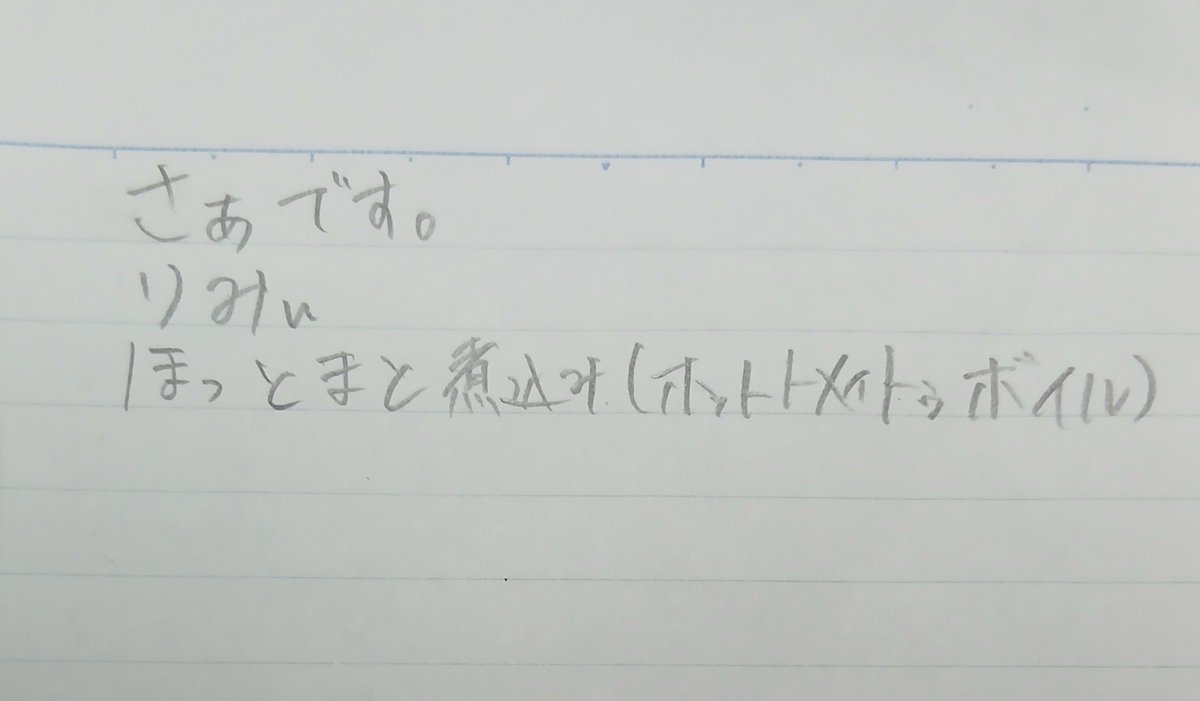 さぁです。
りみぃ
ほっとまと煮込み(ホットトメイトゥボイル)